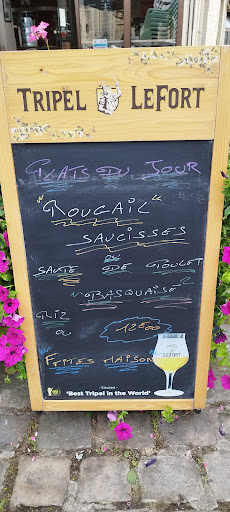 TRIPEL LEFORT
PLATS DU JOUR
" ROUGAIL "
SAUCISSES
OU
SAUTE DE POULET
" BASQUAISE "
RIZ
OU 12€00
FRITES MAISON
LEFORT
- Elected -
'Best Tripel in the World'